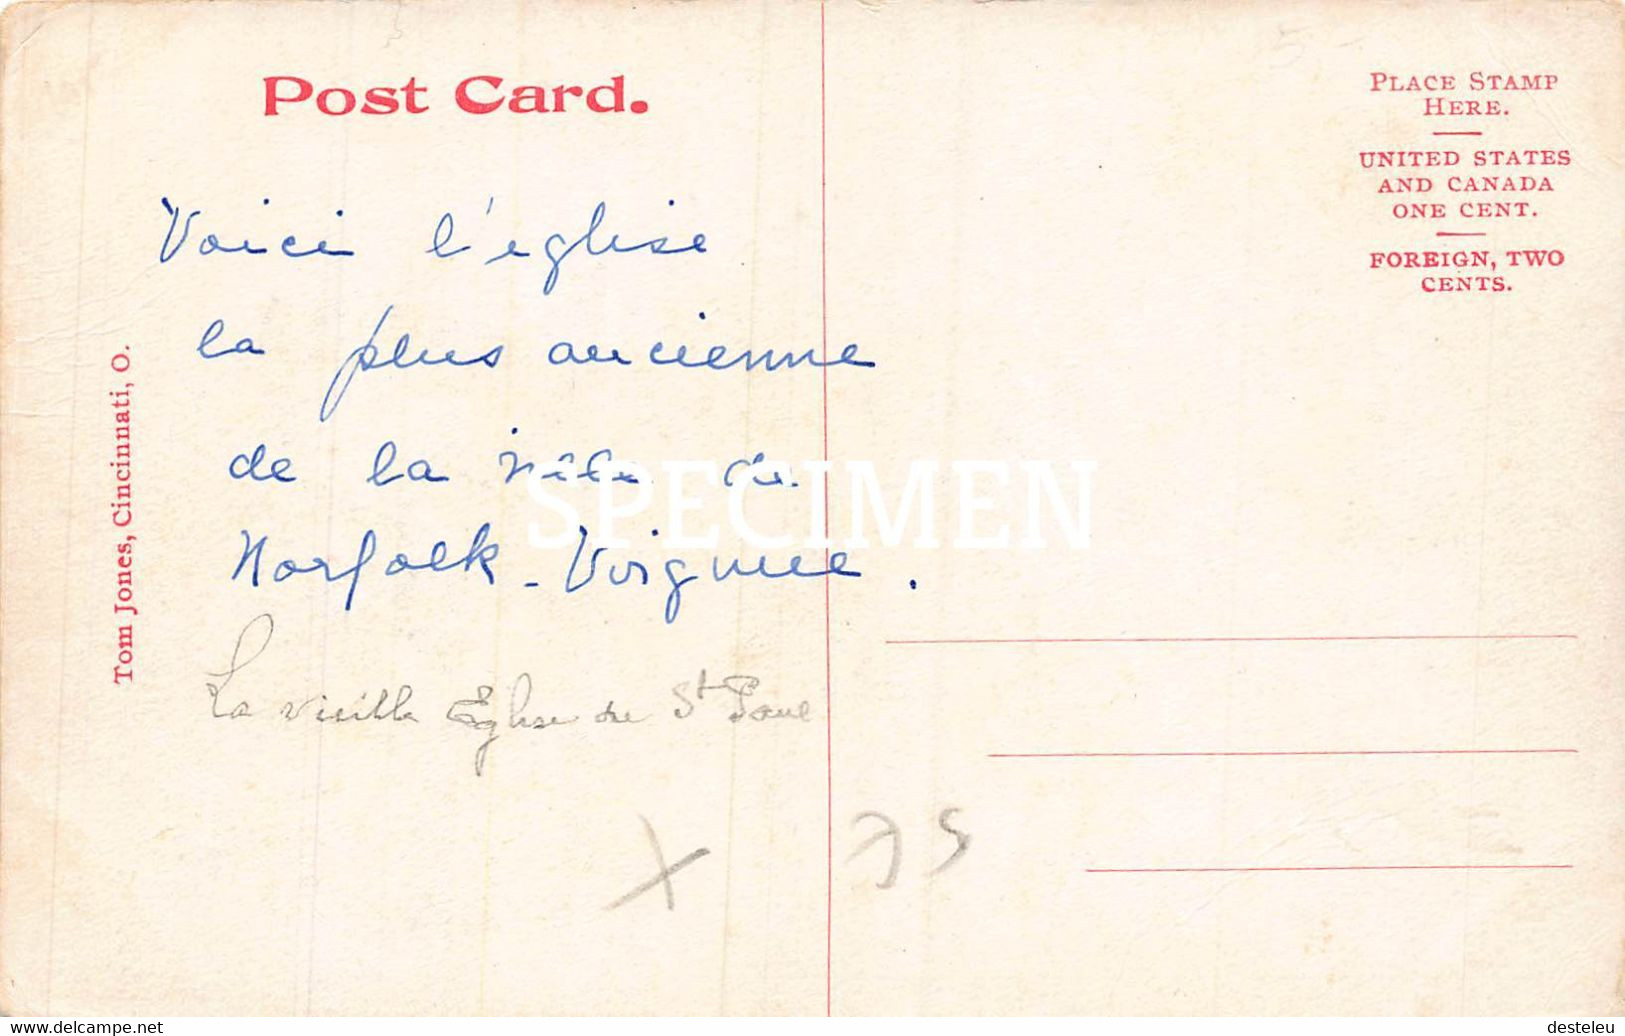 Post Card.
PLACE STAMP
HERE.
UNITED STATES
AND CANADA
ONE CENT.
FOREIGN, TWO
CENTS.
Tom Jones, Cincinnati, O.
Voici l'eglise
la plus ancienne
de la ville de
Norfolk - Virginie.
La vieille Eglise de St Paul
X 75
SPECIMEN
www.delcampe.net
desteleu